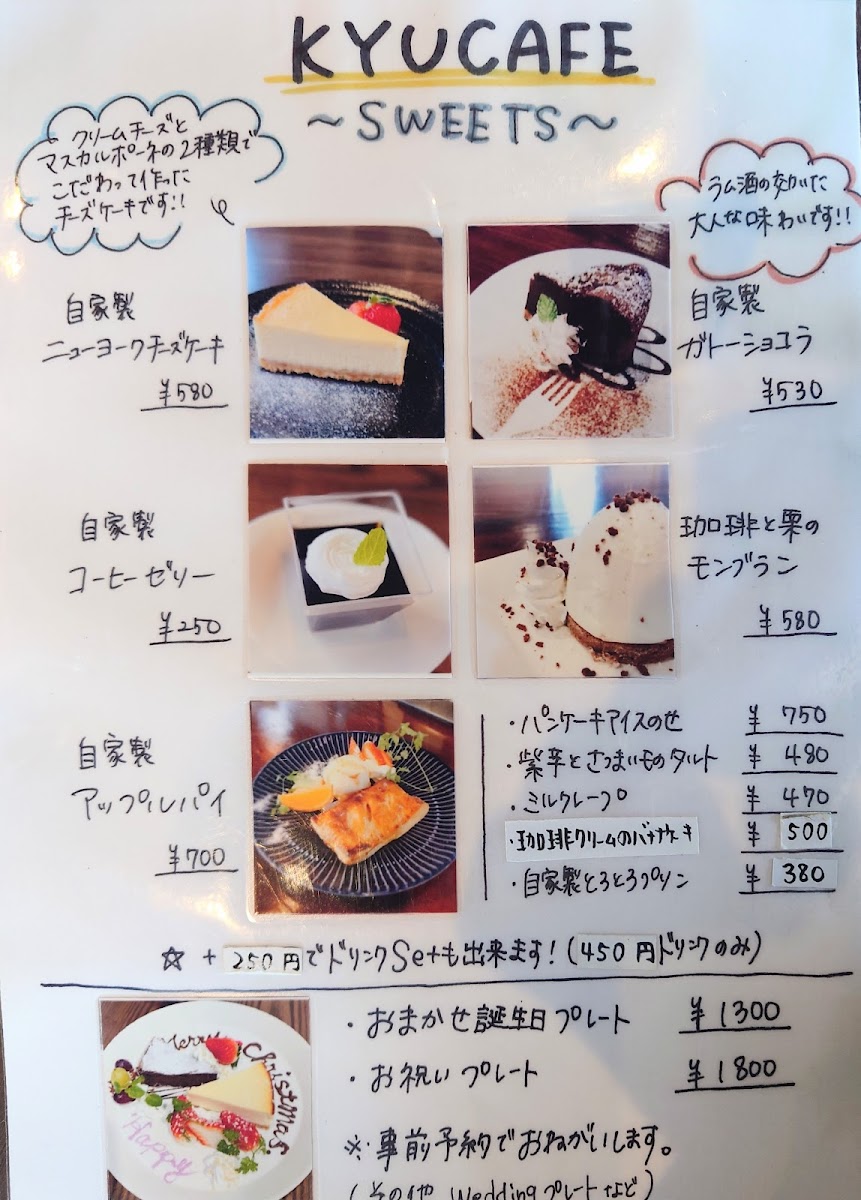 KYUCAFE
~SWEETS~
クリームチーズと
マスカルポーネの2種類で
こだわって作った
チーズケーキです!!
ラム酒の効いた
大人な味わいです!!
自家製
ニューヨークチーズケーキ
¥580
自家製
ガトーショコラ
¥530
自家製
コーヒーゼリー
¥250
珈琲と栗の
モンブラン
¥580
自家製
アップルパイ
¥700
・パンケーキアイスのせ ¥750
・紫芋とさつまいものタルト ¥480
・ミルクレープ ¥470
・珈琲クリームのバナナケーキ ¥500
・自家製とろとろプリン ¥380
☆ + 250円でドリンクSetも出来ます!(450円ドリンクのみ)
・おまかせ誕生日プレート ¥1300
・お祝いプレート ¥1800
※事前予約でおねがいします。
(その他 Weddingプレートなど)
Merry Christmas
Happy